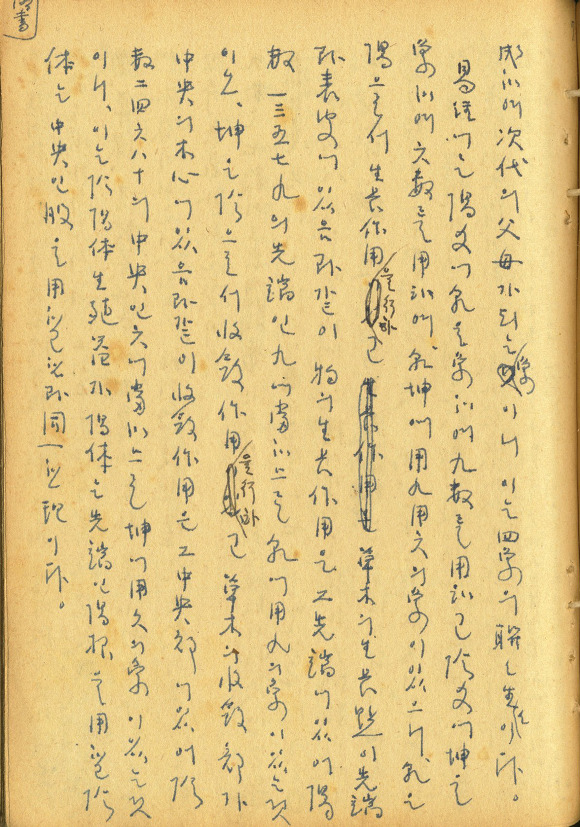 成하야 次代의 父母가 되는 象이니 이는 四象의 聯生이다。
易經에는 陽爻에 乾을 象하야 九數를 用하고 陰爻에 坤을
象하야 六數를 用하야 乾坤에 用九用六의 象이 있으니 乾은
陽으로서 生長作用을 行하고 草木의 生長點이 先端
即 表皮에 있음과 같이 物의 生長作用은 그 先端에 있어 陽
數 一三五七九의 先端인 九에 當함으로 乾에 用九의 象이 있는 것
이오、坤은 陰으로서 收斂作用을 行하고 草木의 收斂部가
中央의 木心에 있음과 같이 收斂作用은 그 中央部에 있어 陰
數 二四六八十의 中央인 六에 當함으로 坤에 用六의 象이 있는 것
이니、이는 陰陽体 生殖器가 陽体는 先端인 陽根을 用하고 陰
体는 中央인 을 用함과 同一한 理이다。